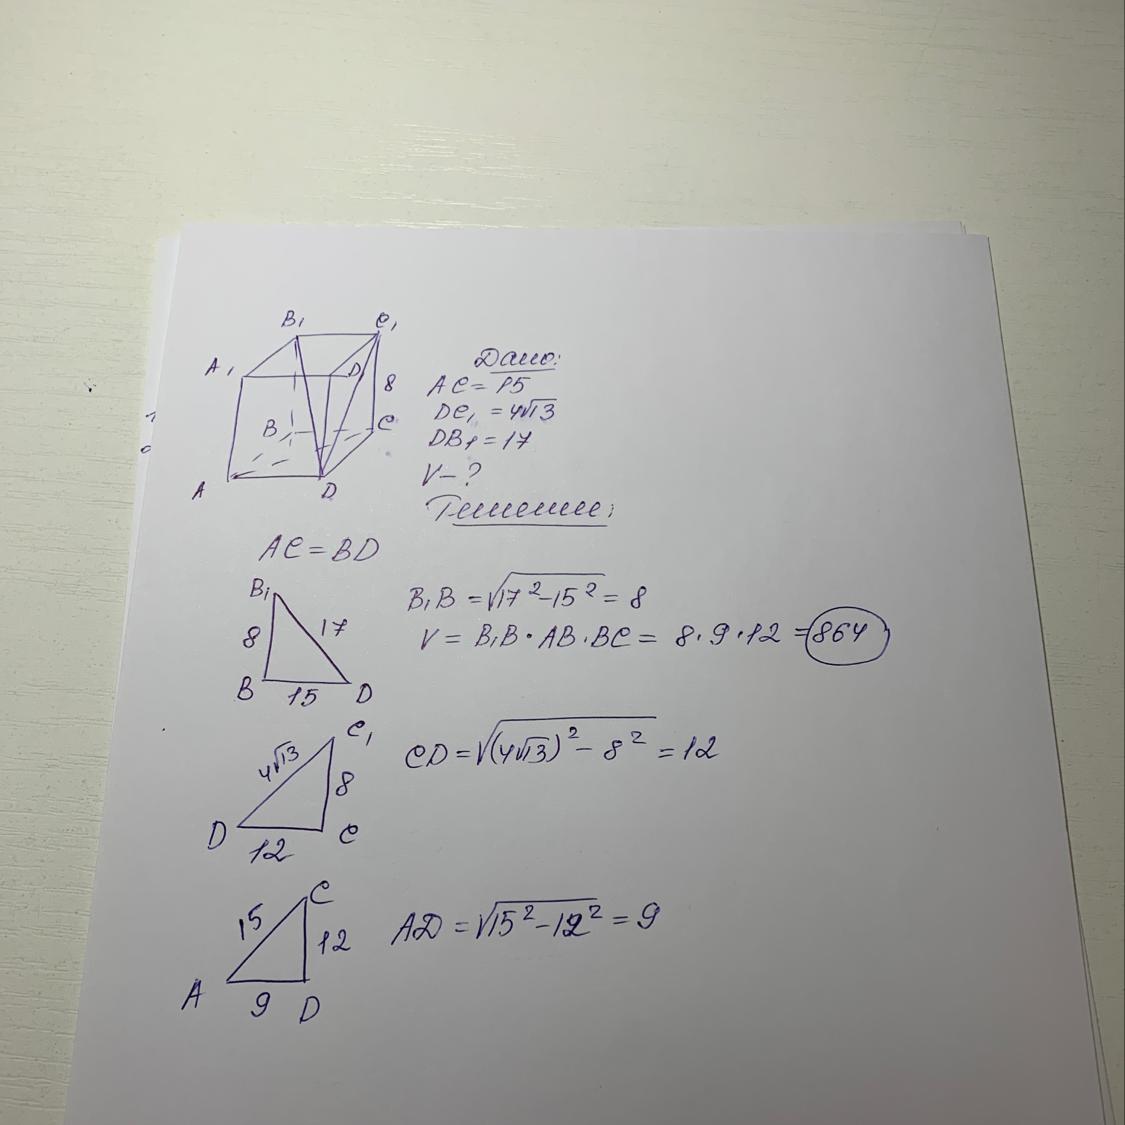 B₁ C₁
A₁ D₁
8
B C
A D
Дано:
AC = 15
DC₁ = 4√13
DB₁ = 17
V – ?
Решение:
AC = BD
B₁
8 17
B 15 D
B₁B = √17² – 15² = 8
V = B₁B · AB · BC = 8 · 9 · 12 = 864
C₁
4√13
8
D 12 C
CD = √(4√13)² – 8² = 12
C
15 12
A 9 D
AD = √15² – 12² = 9